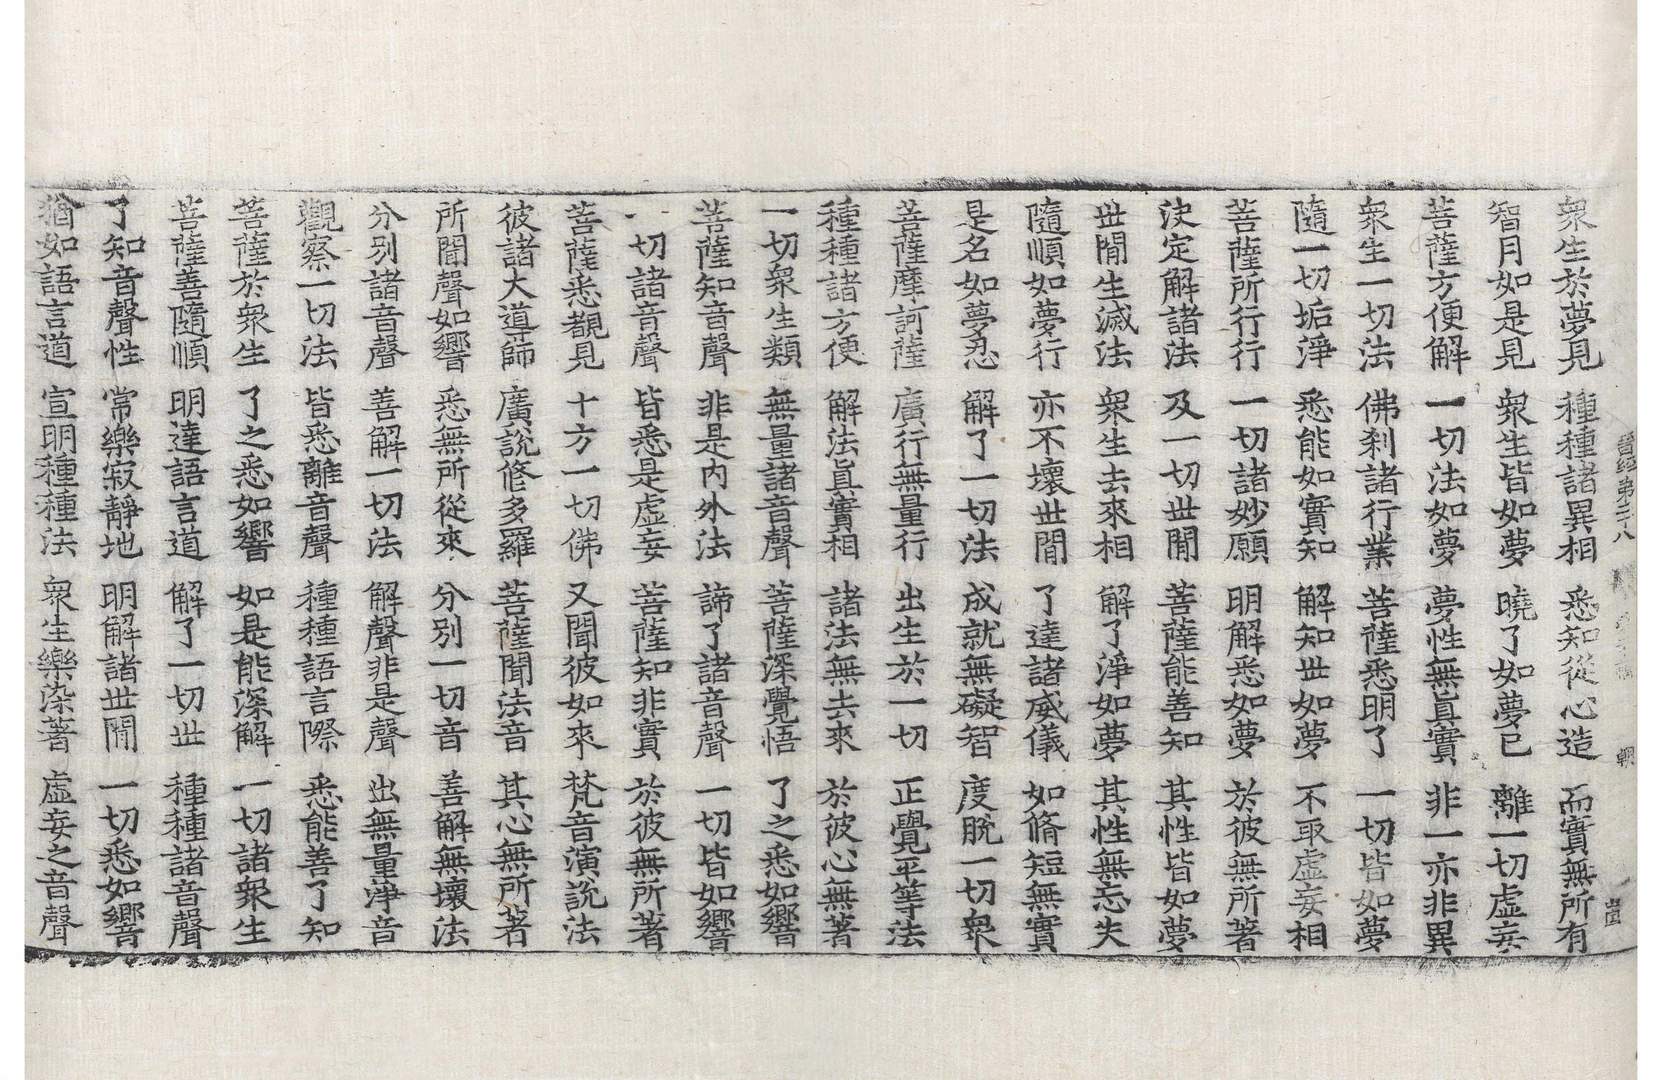 晉經第二十八
朝
衆生於夢見 種種諸異相 悉知從心造 而實無所有
智月如是見 衆生皆如夢 曉了如夢已 離一切虛妄
菩薩方便解 一切法如夢 夢性無眞實 非一亦非異
衆生一切法 佛刹諸行業 菩薩悉明了 一切皆如夢
隨一切垢淨 悉能如實知 解知世如夢 不取虛妄相
菩薩所行行 一切諸妙願 明解悉如夢 於彼無所著
決定解諸法 及一切世閒 菩薩能善知 其性皆如夢
世閒生滅法 衆生去來相 解了淨如夢 其性無忘失
隨順如夢行 亦不壞世閒 了達諸威儀 如脩短無實
是名如夢忍 解了一切法 成就無礙智 度脫一切衆
菩薩摩訶薩 廣行無量行 出生於一切 正覺平等法
種種諸方便 解法眞實相 諸法無去來 於彼心無著
一切衆生類 無量諸音聲 菩薩深覺悟 了之悉如響
菩薩知音聲 非是內外法 諦了諸音聲 一切皆如響
一切諸音聲 皆悉是虛妄 菩薩知非實 於彼無所著
菩薩悉覩見 十方一切佛 又聞彼如來 梵音演說法
彼諸大導師 廣說修多羅 菩薩聞法音 其心無所著
所聞聲如響 悉無所從來 分別一切音 善解無壞法
分別諸音聲 善解一切法 解聲非是聲 出無量淨音
觀察一切法 皆悉離音聲 種種語言際 悉能善了知
菩薩於衆生 了之悉如響 如是能深解 一切諸衆生
菩薩善隨順 明達語言道 解了一切世 種種諸音聲
了知音聲性 常樂寂靜地 明解諸世閒 一切悉如響
猶如語言道 宣明種種法 衆生樂染著 虛妄之音聲